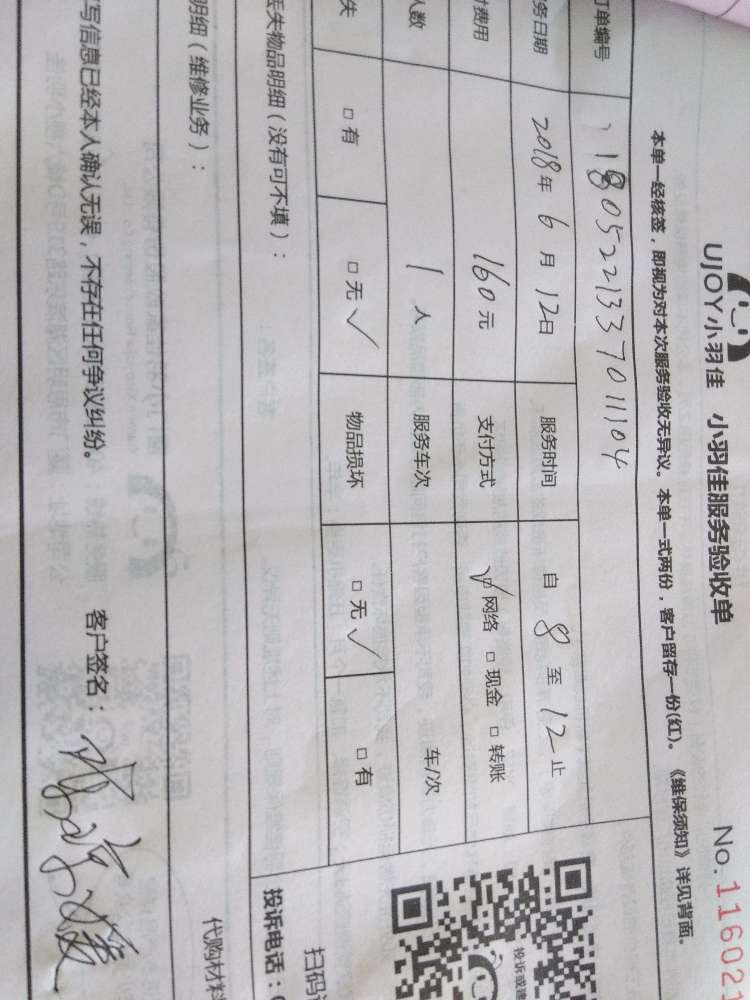 UJOY小羽佳 小羽佳服务验收单
No.116021
本单一经核签，即视为对本次服务验收无异议。本单一式两份，客户留存一份(红)。《维保须知》详见背面。
订单编号 180522133701104
务日期 2018年6月12日 服务时间 自8至12止
费用 160元 支付方式 ☑网络 □现金 □转账
人数 1人 服务车次 车/次
失 □有 □无✓ 物品损坏 □无✓ □有
丢失物品明细（没有可不填）：
明细（维修业务）：
投诉或建
扫码
投诉电话：
代购材料
写信息已经本人确认无误，不存在任何争议纠纷。 客户签名：